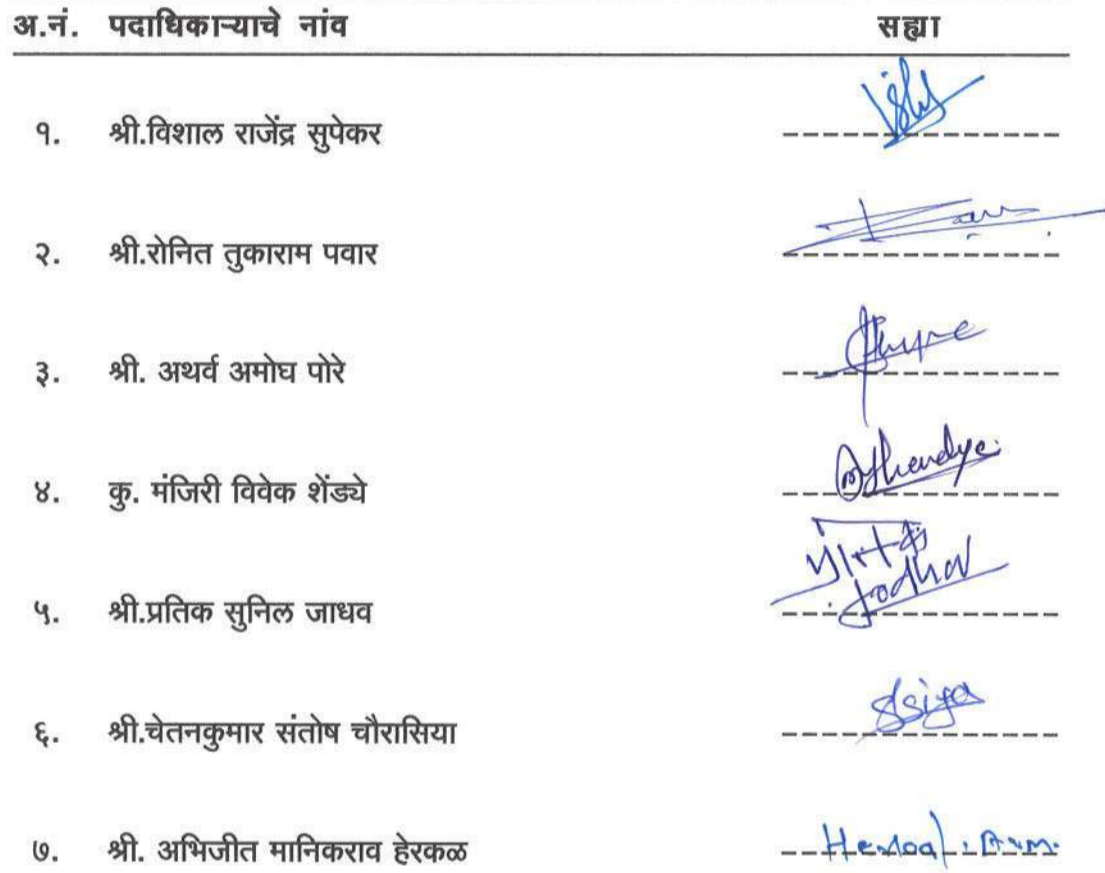 अ.नं. पदाधिकाऱ्याचे नांव सह्या
१. श्री.विशाल राजेंद्र सुपेकर
२. श्री.रोनित तुकाराम पवार
३. श्री. अथर्व अमोघ पोरे
४. कु. मंजिरी विवेक शेंड्ये
५. श्री.प्रतिक सुनिल जाधव
६. श्री.चेतनकुमार संतोष चौरासिया
७. श्री. अभिजीत मानिकराव हेरकळ